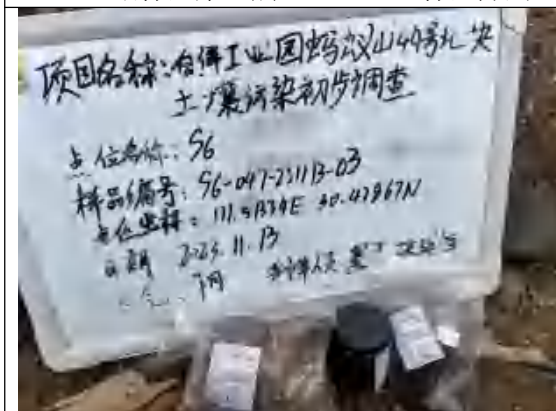 项目名称:白洋工业园蚂蚁山49号地块
土壤污染初步调查
点位名称:S6
样品编号:S6-047-231113-03
点位坐标:111.51339E 30.42967N
日期 2023.11.13
采样人员